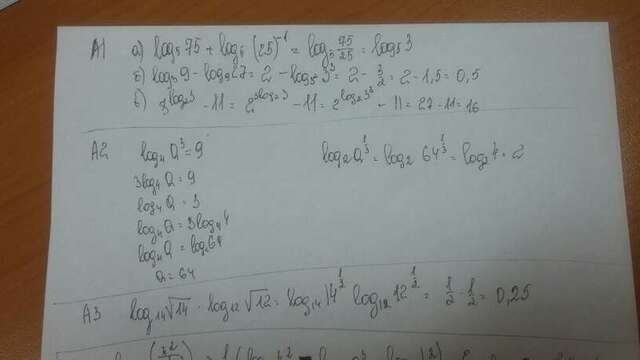 A1 а) log₅75 + log₅(25)⁻¹ = log₅ 75/25 = log₅3
б) log₃9 - log₉27 = 2 - log₃²3³ = 2 - 3/2 = 2 - 1,5 = 0,5
в) 8^log₂3 - 11 = 2^3log₂3 - 11 = 2^log₂3³ - 11 = 27 - 11 = 16
A2 log₄a³ = 9 log₂a^1/3 = log₂ 64^1/3 = log₂4 = 2
3log₄a = 9
log₄a = 3
log₄a = 3log₄4
log₄a = log₄64
a = 64
A3 log₁₄√14 · log₁₂√12 = log₁₄14^1/2 log₁₂12^1/2 = 1/2 · 1/2 = 0,25